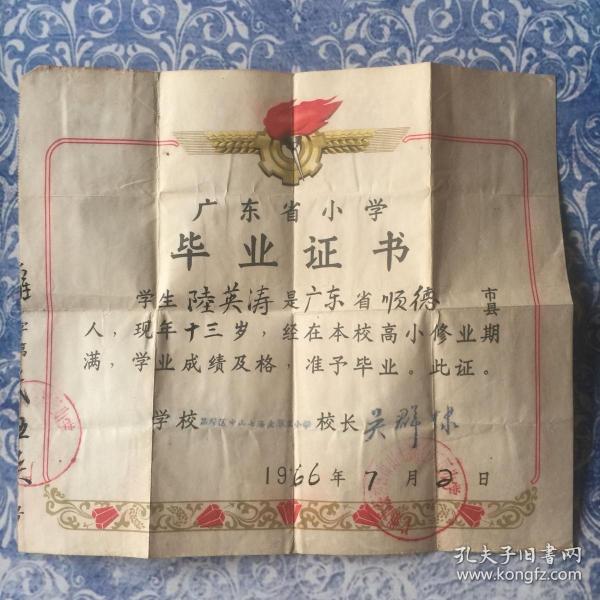 广东省小学
毕业证书
学生陸英涛是广东省顺德市县
人，现年十三岁，经在本校高小修业期
满，学业成绩及格，准予毕业。此证。
学校 校长 吴群
1966年7月2日
孔夫子旧書网
www.kongfz.com